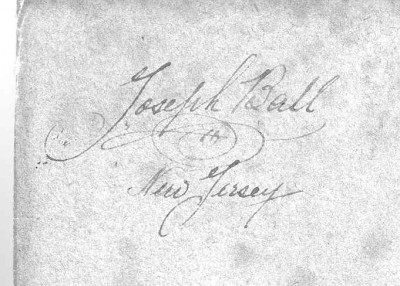 Joseph Ball
in
New Jersey